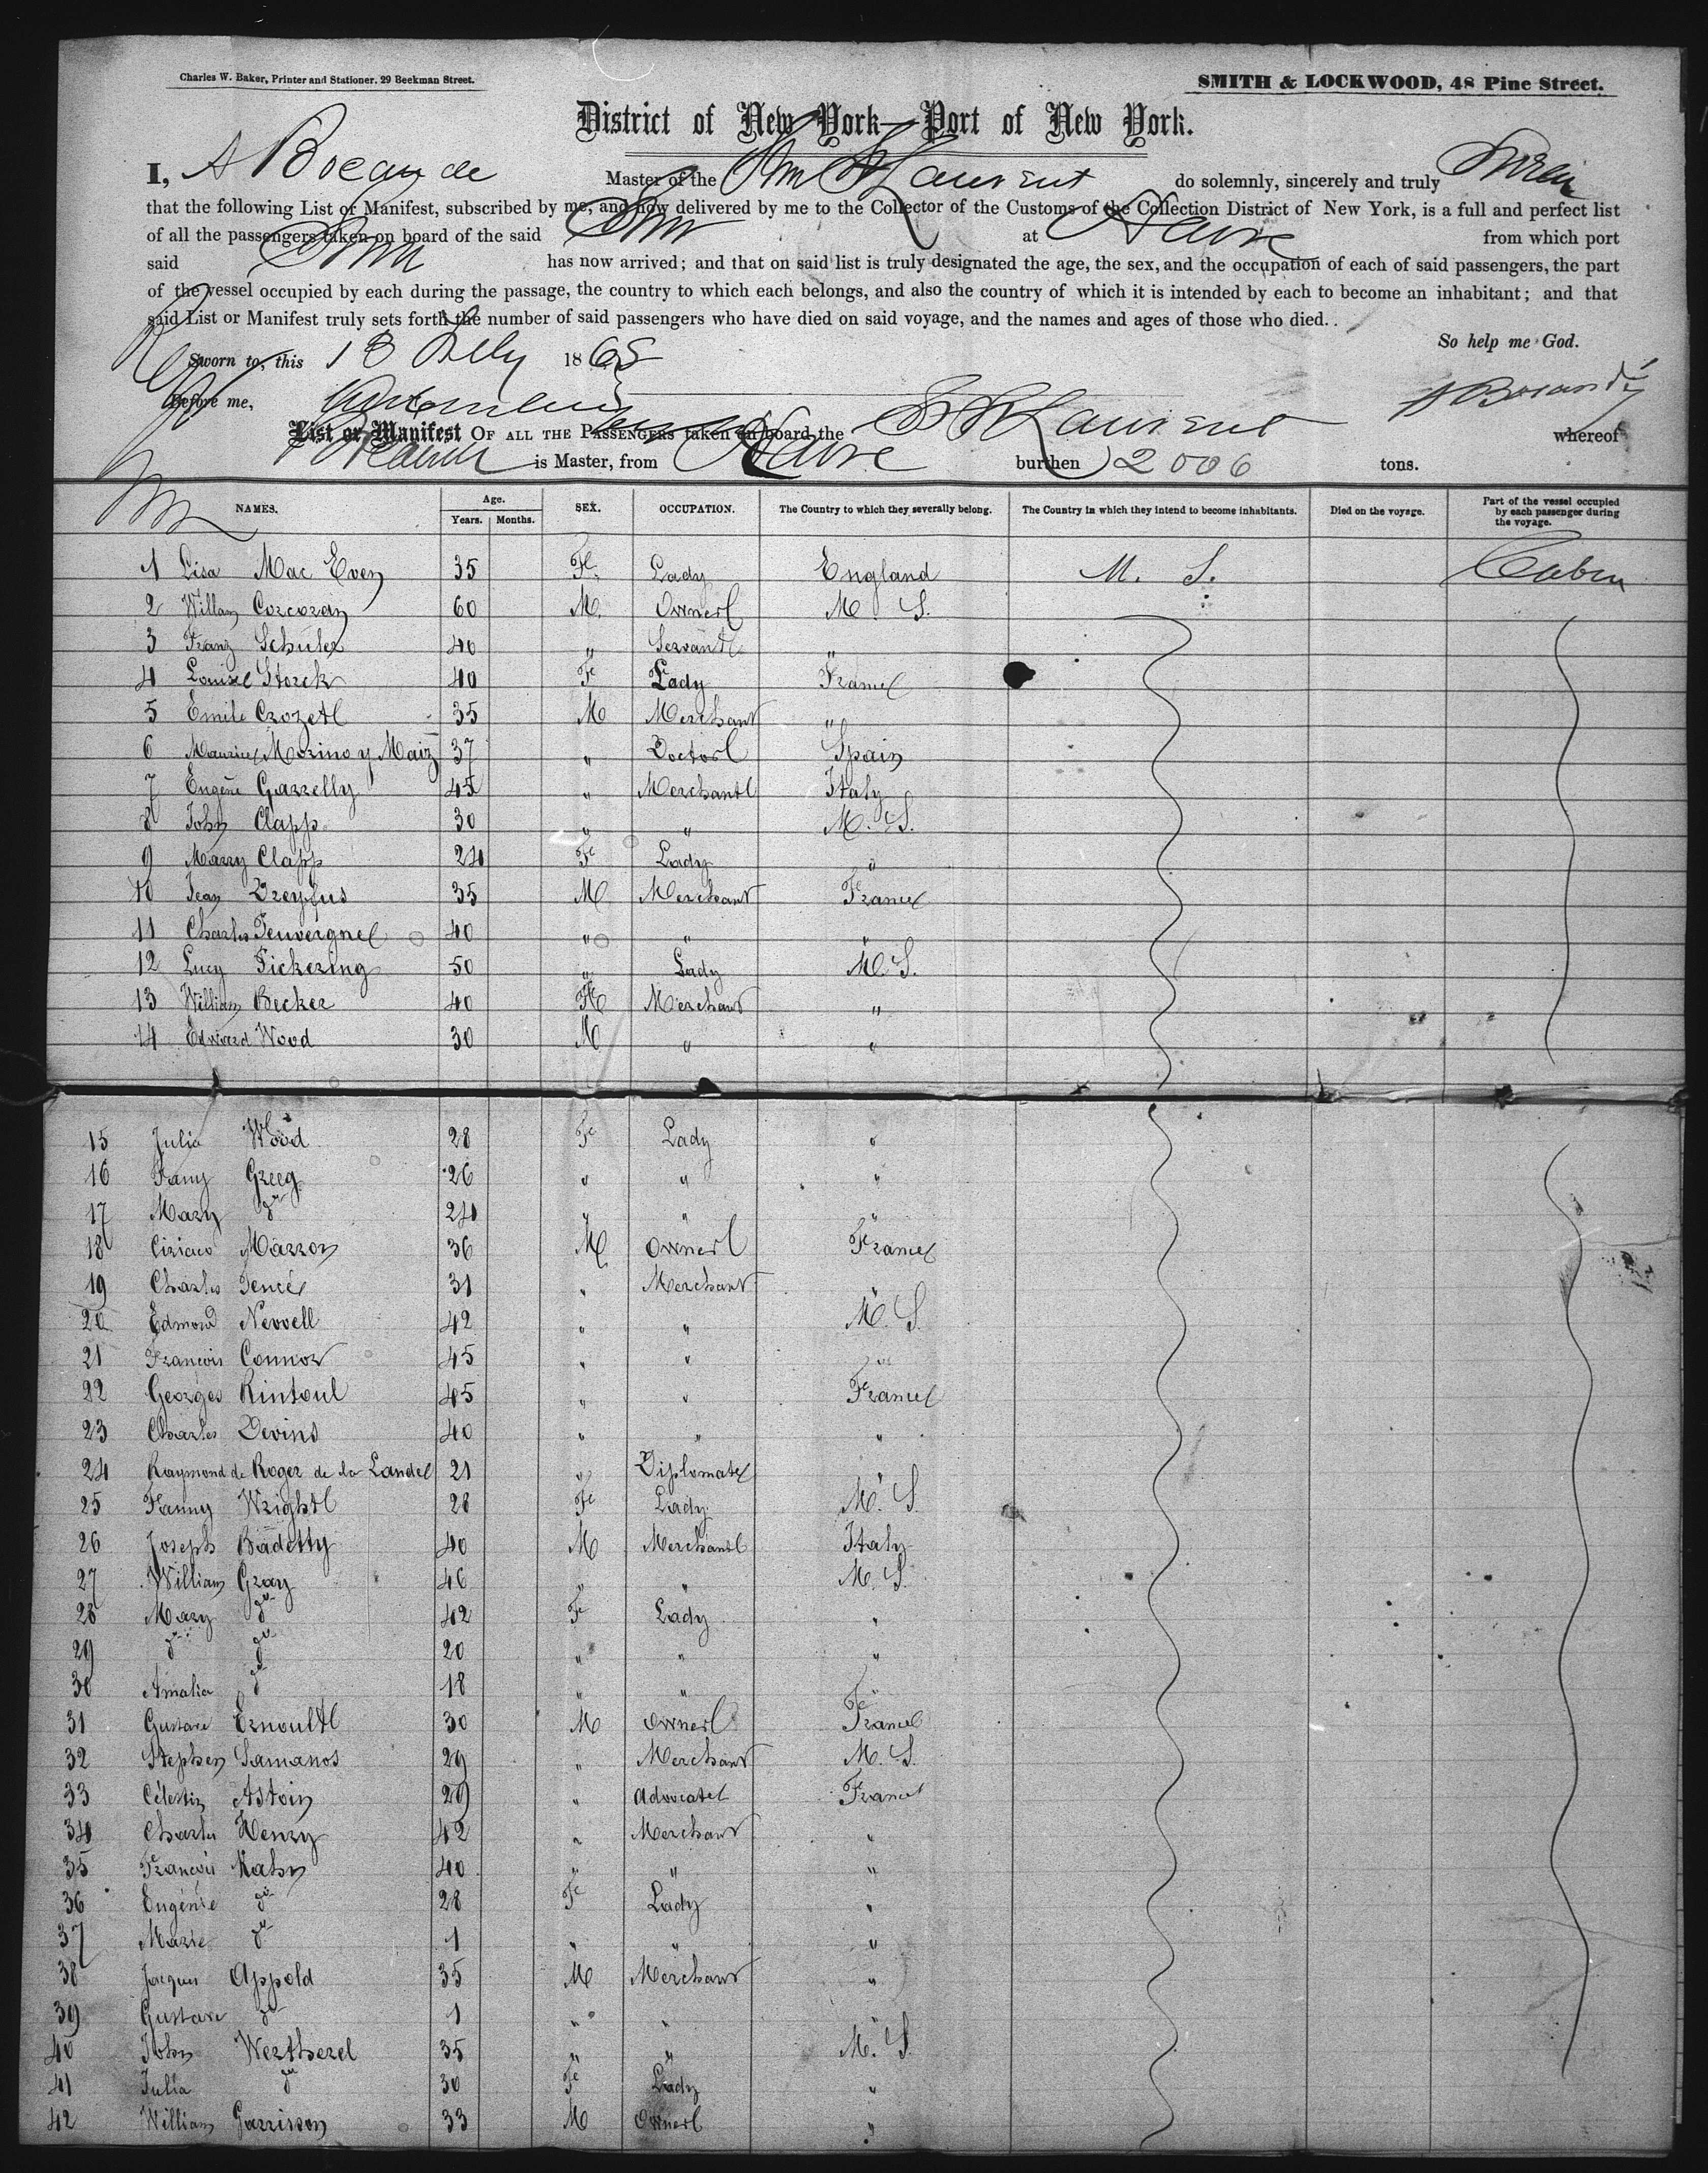 Charles W. Baker, Printer and Stationer. 29 Beekman Street.
SMITH & LOCKWOOD, 48 Pine Street.
District of New York—Port of New York.
I, A Bocande Master of the Stm St Laurent do solemnly, sincerely and truly Swear
that the following List or Manifest, subscribed by me, and now delivered by me to the Collector of the Customs of the Collection District of New York, is a full and perfect list
of all the passengers taken on board of the said Stm at Havre from which port
said Stm has now arrived; and that on said list is truly designated the age, the sex, and the occupation of each of said passengers, the part
of the vessel occupied by each during the passage, the country to which each belongs, and also the country of which it is intended by each to become an inhabitant; and that
said List or Manifest truly sets forth the number of said passengers who have died on said voyage, and the names and ages of those who died.
So help me God.
Sworn to, this 13 July 1868
Before me,
A Bocandé
List or Manifest OF ALL THE PASSENGERS taken on board the S St Laurent whereof
is Master, from Havre burthen 2006 tons.
NAMES. Age. Years. Months. SEX. OCCUPATION. The Country to which they severally belong. The Country in which they intend to become inhabitants. Died on the voyage. Part of the vessel occupied by each passenger during the voyage.
1 Lisa Mac Even 35 Fe Lady England M. S. Cabin
2 William Corcoran 60 M. Owner M S.
3 Franz Schuler 40 " Servant "
4 Louise Storck 40 Fe Lady France
5 Emile Crozet 35 M Merchant "
6 Maurice Morino y Maiz 37 " Doctor Spain
7 Eugène Gazzelly 45 " Merchant Italy
8 John Clapp 30 " " M. S.
9 Marry Clapp 24 Fe Lady "
10 Jean Dreyfus 35 M Merchant France
11 Charles Feuvergnel 40 " " "
12 Lucy Pickering 50 " Lady M. S.
13 William Becker 40 Fe Merchant "
14 Edward Wood 30 M " "
15 Julia Wood 28 Fe Lady "
16 Fany Greeg 26 " " "
17 Mary do 24 " " "
18 Ciriaco Marron 36 M Owner France
19 Charles Fencé 31 " Merchant "
20 Edmond Newell 42 " " M. S.
21 François Connor 45 " " "
22 Georges Rintoul 45 " " France
23 Charles Devins 40 " " "
24 Raymond de Roger de la Lande 21 " Diplomate "
25 Fanny Wright 28 Fe Lady M. S.
26 Joseph Badetty 40 M Merchant Italy
27 William Gray 46 " " M. S.
28 Mary do 42 Fe Lady "
29 do do 20 " " "
30 Amalia do 18 " " "
31 Gustave Ernoult 30 M Owner France
32 Stephen Samanos 29 " Merchant M. S.
33 Célestin Astoin 29 " Advocate France
34 Charles Henry 42 " Merchant "
35 François Kahn 40 " " "
36 Eugénie do 28 Fe Lady "
37 Marie do 1 " " "
38 Jacques Appold 35 M Merchant "
39 Gustave do 1 " " "
40 John Wertherel 35 " " M. S.
41 Julia do 30 Fe Lady "
42 William Garrison 33 M Owner "